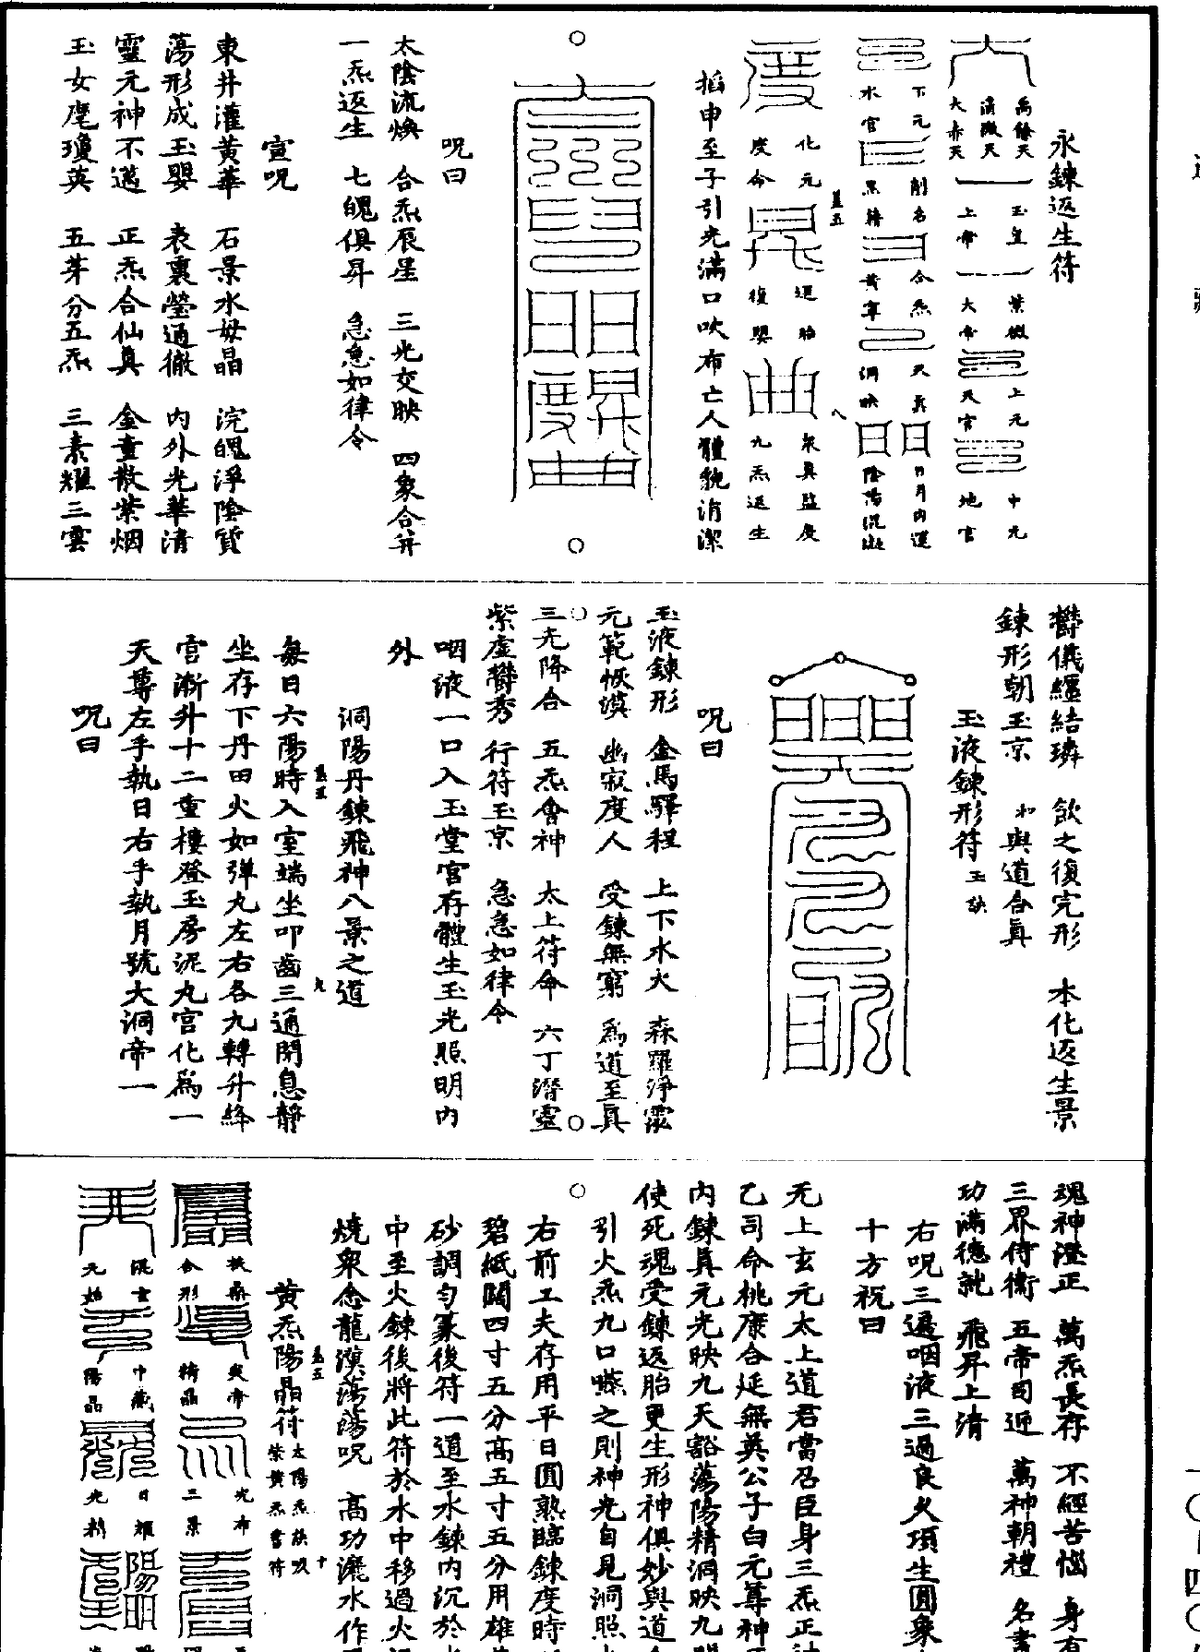 永鍊返生符
禹餘天
清微天
大赤天
玉皇
上帝
紫微
大帝
上元
天官
中元
地官
下元
水官
削名
黑籍
合炁
黃寧
天真
洞映
日月內運
化元
度命
迴胎
復嬰
眾真監度
九炁返生
掐申至子引光滿口吹布亡人體貌消潔
咒曰
太陰流煥 合炁辰星 三光交映 四象合并
一炁返生 七魄俱昇 急急如律令
宣咒
東井灌黃華 石景水母晶 浣魄淨陰質
蕩形成玉嬰 表裏瑩通徹 內外光華清
靈元神不邁 正炁合仙真 金童散紫烟
玉女麾瓊英 五芽分五炁 三素耀三雲
鬱儀纏結璘 飲之復完形 本化返生景
鍊形朝玉京 與道合真
玉液鍊形符 玉訣
咒曰
玉液鍊形 金馬驛程 上下水火 森羅淨霐
元範恢漠 幽寂度人 受鍊無窮 為道至真
三光降合 五炁會神 太上符命 六丁潛靈
紫虛鬱秀 行符玉京 急急如律令
咽液一口入玉堂宮存體生玉光照明內
外
洞陽丹鍊飛神八景之道
每日六陽時入室端坐叩齒三通閉息靜
坐存下丹田火如彈丸左右各九轉升絳
宮漸升十二重樓登玉房泥丸宮化為一
天尊左手執日右手執月號大洞帝一
咒曰
魂神澄正 萬炁長存 不經苦惱 身有
三界侍衛 五帝司迎 萬神朝禮 名書
功滿德就 飛昇上清
右咒三遍咽液三過良久項生圓象
十方祝曰
无上玄元太上道君當召臣身三炁正神
乙司命桃康合延無英公子白元尊神
內鍊真元光映九天豁蕩陽精洞映九
使死魂受鍊返胎更生形神俱妙與道
引火炁九口嚥之則神光自見洞照
右前工夫存用平日圓熟臨鍊度時
碧紙闊四寸五分高五寸五分用雄
砂調勻篆後符一道至水鍊內沉於
中至火鍊後將此符於水中移過火
燒眾念龍漢蕩蕩咒 高功灑水作
黃炁陽晶符 太陽炁訣吸
紫黃炁書符
扶桑
合形
炎帝
精晶
光布
三景
混玄
元始
中藏
陽晶
日耀
光精